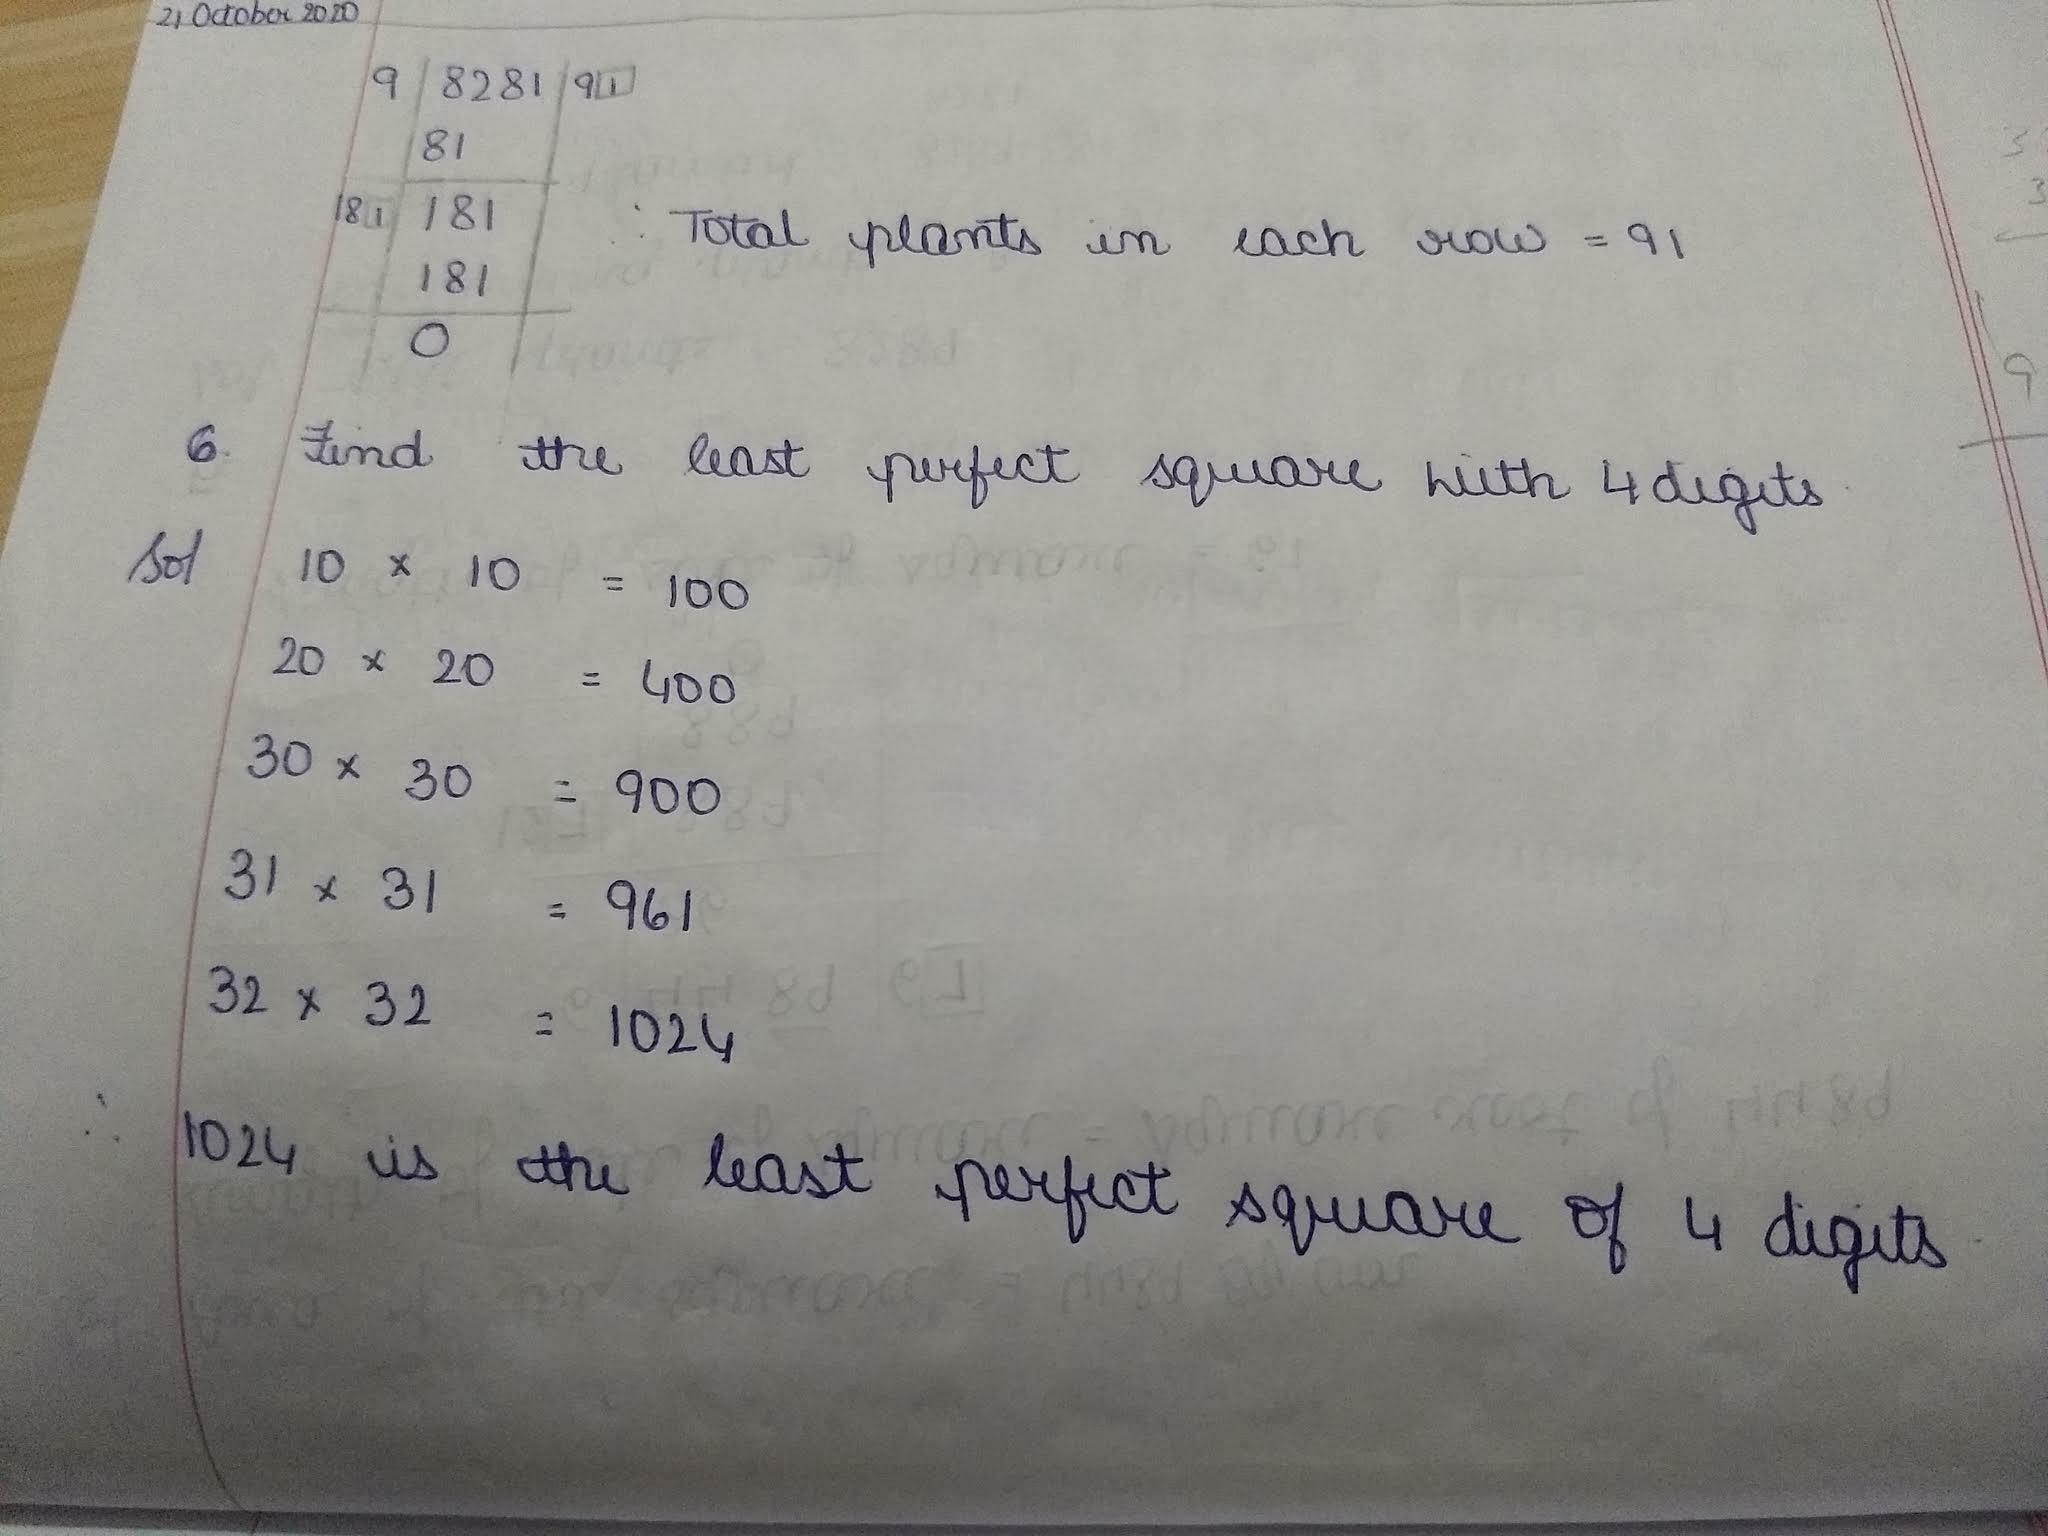 21 October 2020
9 8281 91
81
181 181
∴ Total plants in each row = 91
181
0
6. Find the least perfect square with 4 digits
Sol 10 × 10 = 100
20 × 20 = 400
30 × 30 = 900
31 × 31 = 961
32 × 32 = 1024
∴ 1024 is the least perfect square of 4 digits
3
3
9